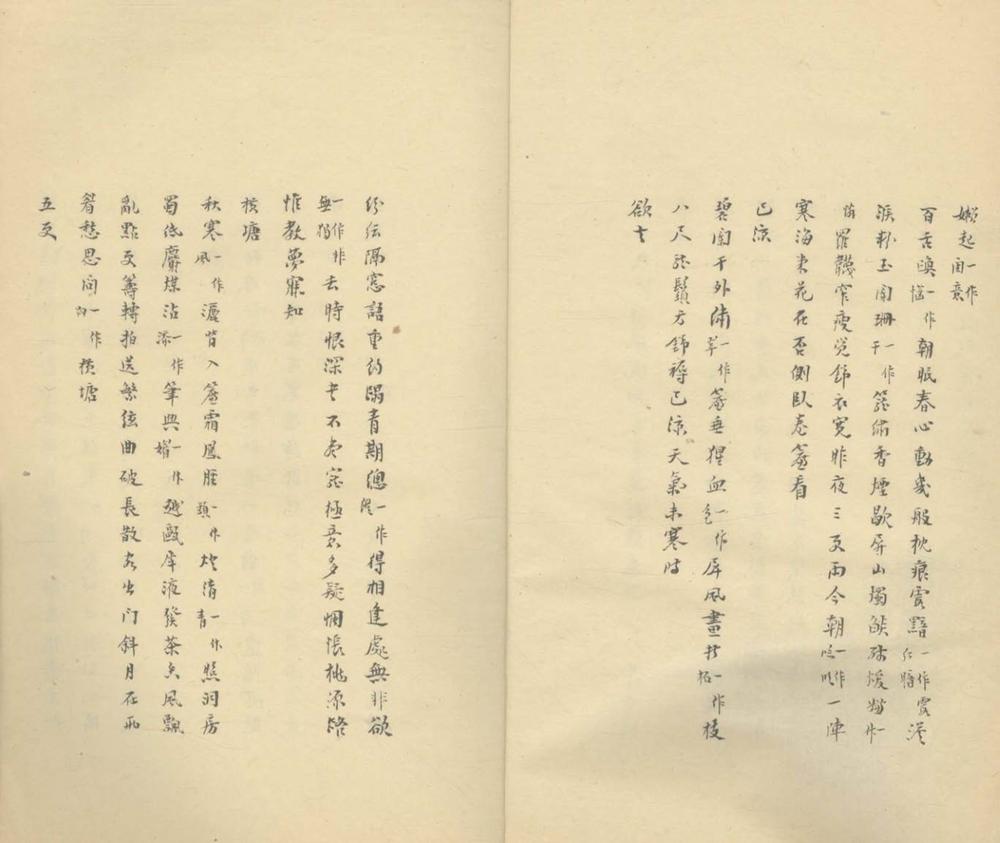 嬾起一作閨意
百舌喚一作惱朝眠春心動幾般枕痕霞黯一作紅暗霞澹
淚粉玉闌珊一作干籠繡香煙歇屏山燭燄殘煖嫌一作
怕羅韈窄瘦覺錦衣寬昨夜三更雨今朝一作臨明一陣
寒海棠花在否側臥卷簾看
已涼
碧闌干外繡一作翠簾垂猩血一作色屏風畫折一作柘枝
八尺龍鬚方錦褥已涼天氣未寒時
欲去
紛紜隔窗語重約蹋青期總一作縱得相逢處無非欲
一作無獨作非去時恨深書不盡寵極意多疑惆悵桃源路
惟教夢寐知
橫塘
秋寒一作風灑背入簾霜鳳脛一作頸燈清一作青照洞房
蜀紙麝煤沾一作添筆興一作媚越甌犀液發茶香風飄
亂點更籌轉拍送繁弦曲破長散客出門斜月在兩
眉愁思問一作向橫塘
五更